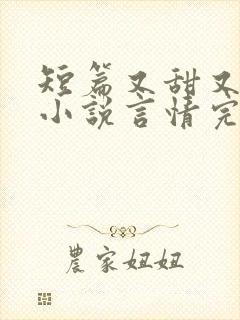 短篇又甜又
小说言情完
農家妞妞